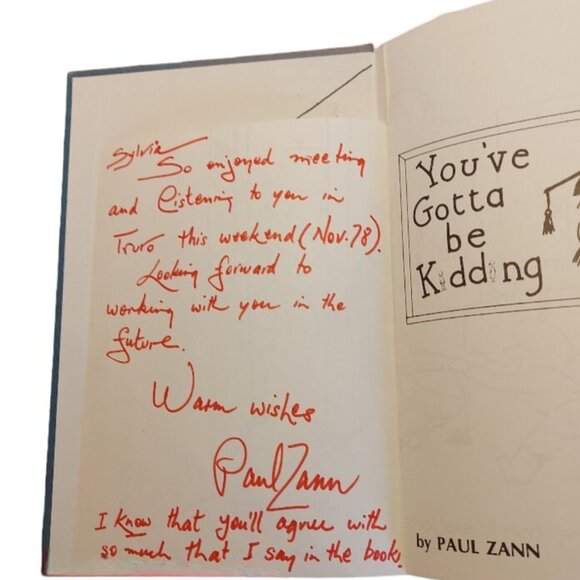 Sylvia
So enjoyed meeting
and listening to you in
Truro this weekend (Nov. 78).
Looking forward to
working with you in the
future.
Warm wishes
Paul Zann
I know that you'll agree with
so much that I say in the book.
You've
Gotta
be
Kidding
by PAUL ZANN